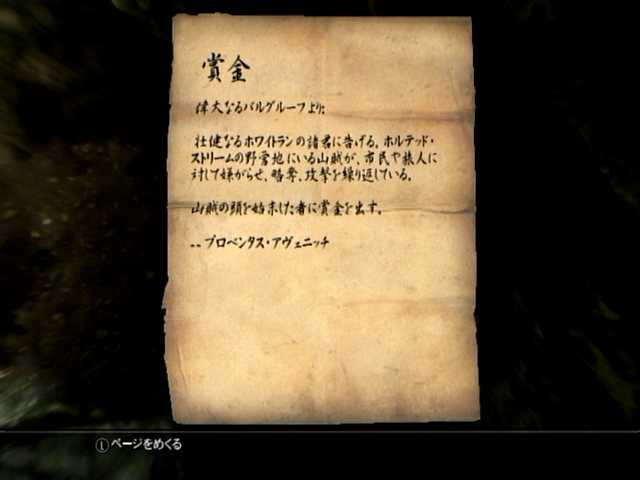 賞金
偉大なるバルグルーフより:
壮健なるホワイトランの諸君に告げる。ホルテッド・
ストリームの野営地にいる山賊が、市民や旅人に
対して嫌がらせ、略奪、攻撃を繰り返している。
山賊の頭を始末した者に賞金を出す。
-- プロベンタス・アヴェニッチ
Ⓛページをめくる